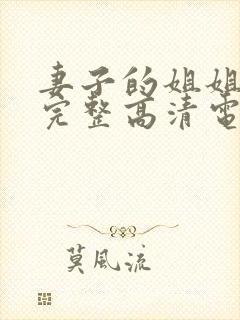 妻子的姐姐
完整高清電
莫風流